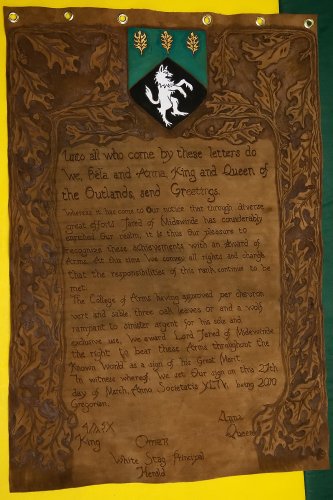 Unto all who come by these letters do
We, Béla and Anna, King and Queen of
the Outlands, send Greetings.
Whereas it has come to Our notice that through diverse
great efforts Jared of Nidewinde has considerably
enriched Our realm, it is thus Our pleasure to
recognize these achievements with an award of
Arms. At this time We convey all rights and charge
that the responsibilities of this rank continue to be
met.
The College of Arms having approved per chevron
vert and sable three oak leaves or and a wolf
rampant to sinister argent for his sole and
exclusive use, we award Lord Jared of Nidewinde
the right to bear these Arms throughout the
Known World as a sign of his Great Merit.
In witness whereof We set Our sign on this 27th
day of March, Anno Societatis XLIV, being 2010
Gregorian.
King
Anna
Queen
White Stag Principal
Herald